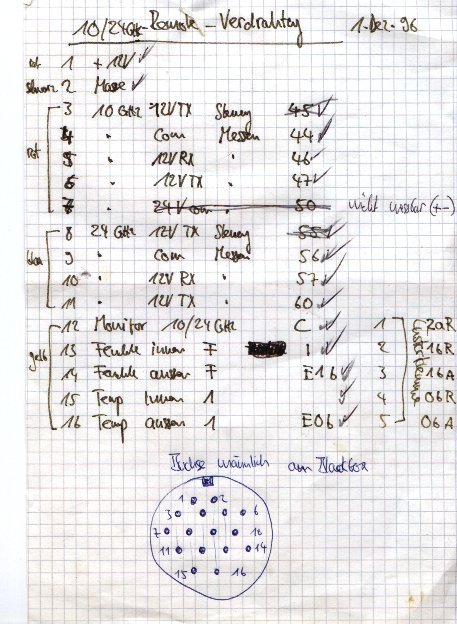 10/24GHz-Remote-Verdrahtung 1. Dez. 96
rot 1 + 12V ✓
schwarz 2 Masse ✓
3 10 GHz 12V TX Steuerg 45 ✓
4 " Com Messen 44 ✓
rot 5 " 12V RX " 46 ✓
6 " 12V TX " 47 ✓
7 " 24V com " 50 nicht messbar (+-)
8 24 GHz 12V TX Steuerg 55 ✓
blau 9 " Com Messen 56 ✓
10 " 12V RX " 57 ✓
11 " 12V TX " 60 ✓
12 Monitor 10/24GHz C ✓ 1 20R
gelb 13 Feuchte innen F I ✓ 2 16R
14 Feuchte aussen F E16 ✓ 3 16A
15 Temp innen 1 ✓ 4 06R
16 Temp aussen 1 E06 ✓ 5 06A
Buchse räumlich am
1 2
3 6
7 10
11 14
15 16